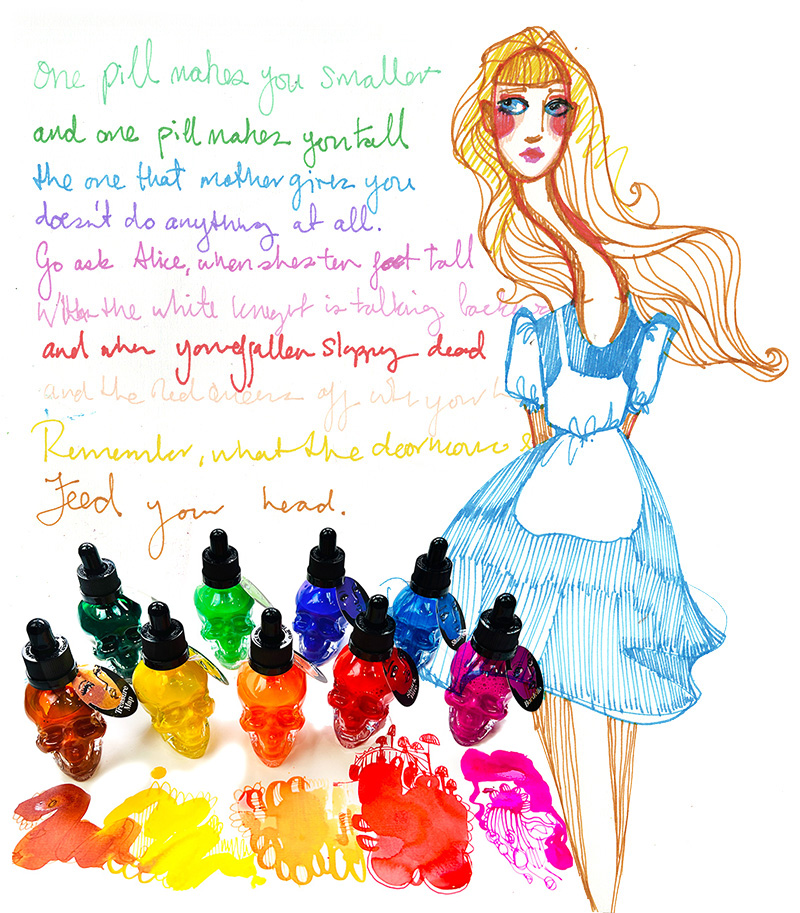 One pill makes you smaller
and one pill makes you tall
the one that mother gives you
doesn't do anything at all.
Go ask Alice, when shes ten foot tall
When the white knight is talking backwar
and when you've fallen sloppy dead
and the Red Queens off with your h
Remember, what the doormouse s
Feed your head.
Treasure Map